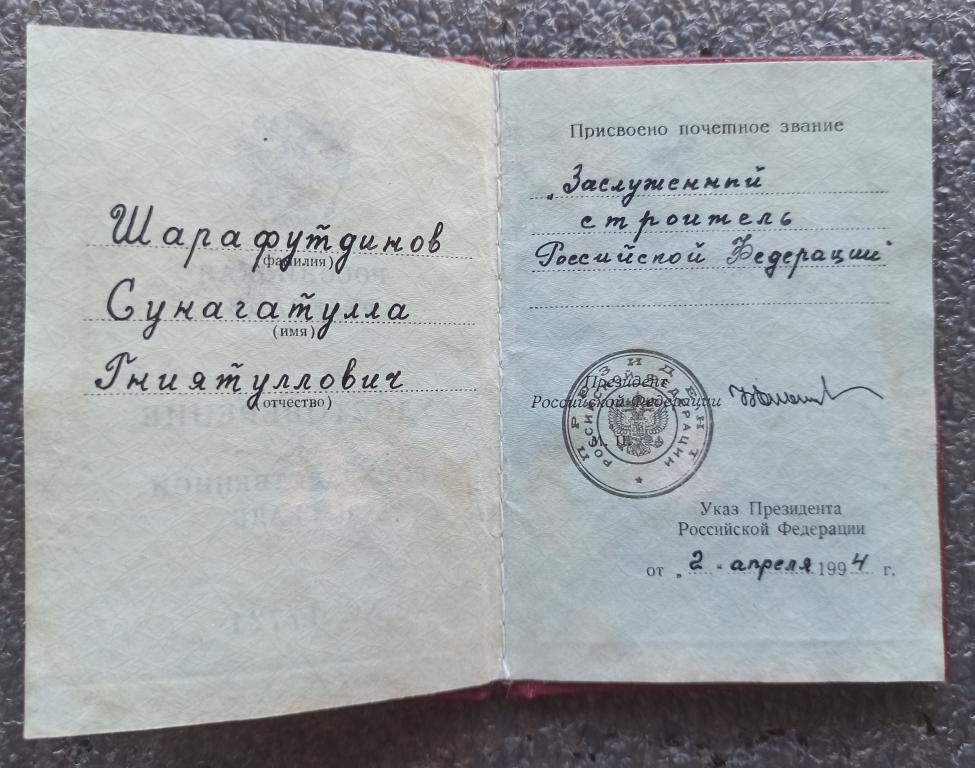 Шарафутдинов
(фамилия)
Сунагатулла
(имя)
Гниятуллович
(отчество)
Присвоено почетное звание
„Заслуженный
строитель
Российской Федерации"
Президент
Российской Федерации
М. П.
ПРЕЗИДЕНТ
РОССИЙСКОЙ ФЕДЕРАЦИИ
Указ Президента
Российской Федерации
от „2" апреля 1994 г.